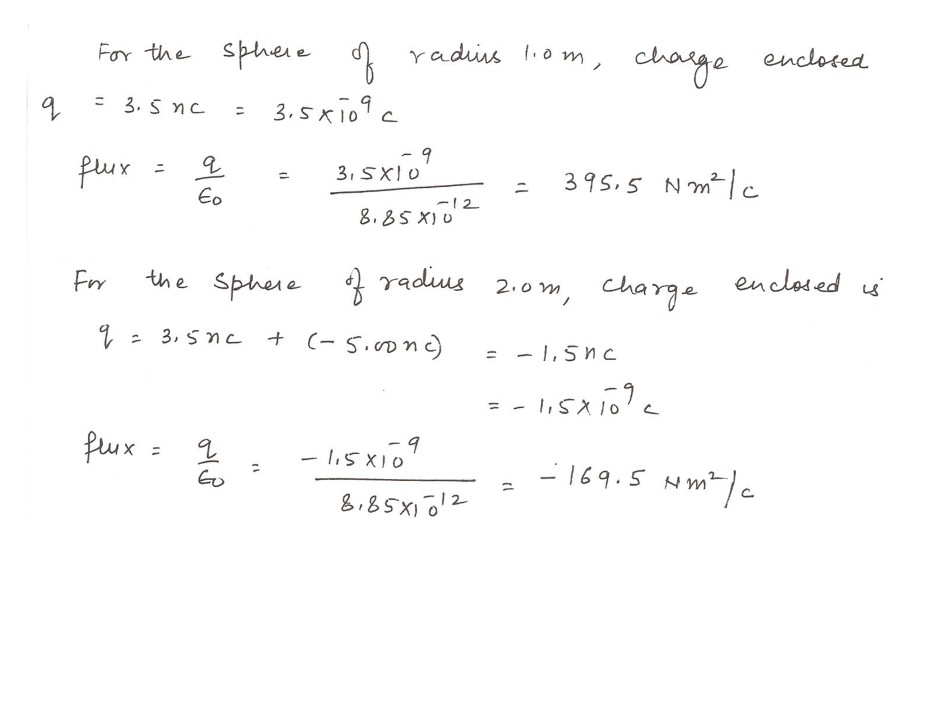 For the sphere of radius 1.0 m, charge enclosed
q = 3.5 nc = 3.5 x 10⁻⁹ c
flux = q/ϵ₀ = 3.5 x 10⁻⁹ / 8.85 x 10⁻¹² = 395.5 Nm²/c
For the sphere of radius 2.0 m, charge enclosed is
q = 3.5 nc + (- 5.00 nc) = - 1.5 nc
= - 1.5 x 10⁻⁹ c
flux = q/ϵ₀ = - 1.5 x 10⁻⁹ / 8.85 x 10⁻¹² = - 169.5 Nm²/c